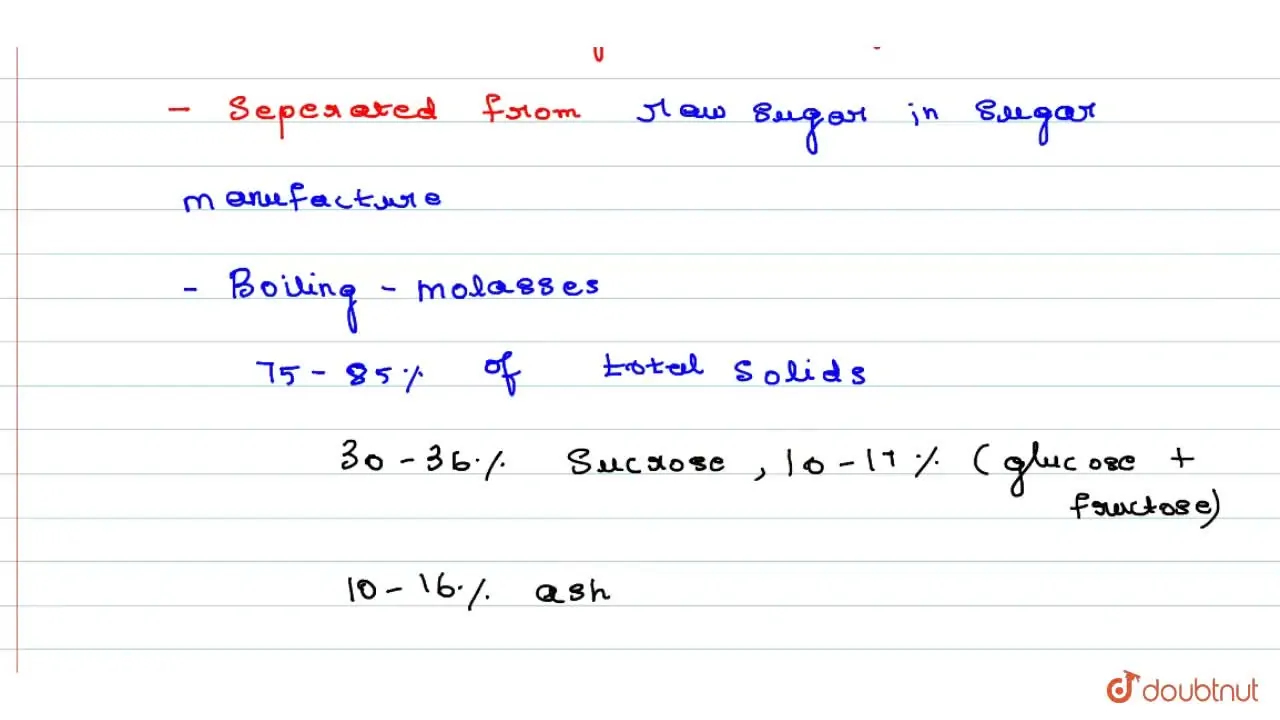 - Seperated from raw sugar in sugar
manufacture
- Boiling - molasses
75 - 85% of total solids
30 - 36% Sucrose, 10 - 17% (glucose +
fructose)
10 - 16% ash
doubtnut